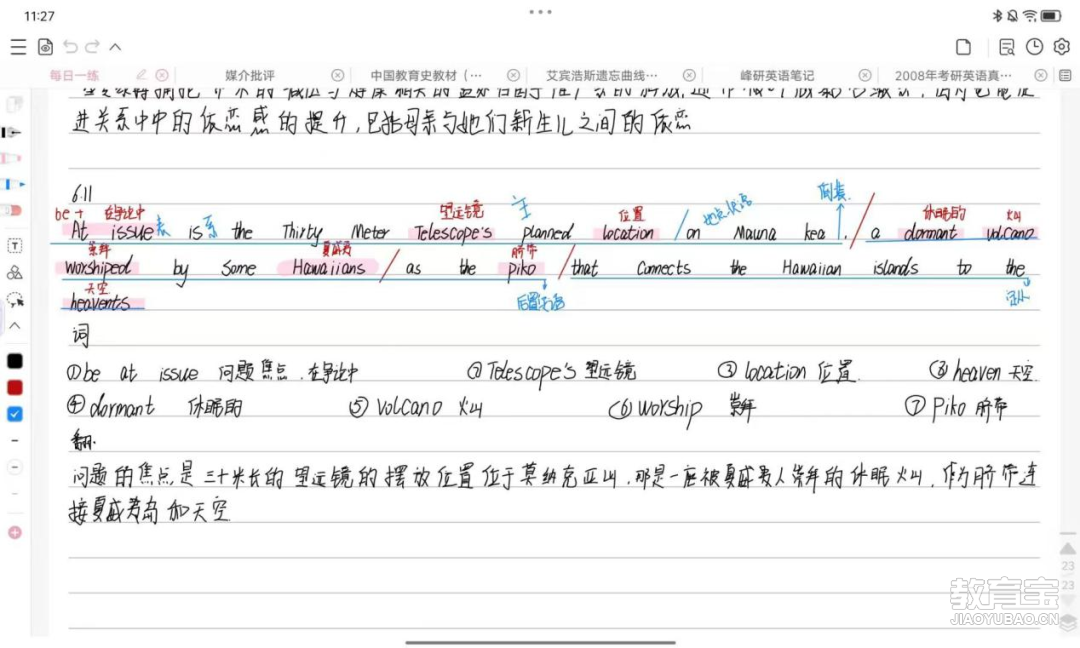 11:27
每日一练 媒介批评 中国教育史教材（… 艾宾浩斯遗忘曲线… 峰研英语笔记 2008年考研英语真…
进关系中中的依恋感的提升,包括母亲与她们新生儿之间的依恋
6.11
be + 在争论中 望远镜 主 位置 地点状语 倒装 休眠的 火山
At issue 表 is 系 the Thirty Meter Telescope's planned location / on Mauna kea , / a dormant volcano
崇拜 夏威夷 脐带
worshiped by some Hawaiians / as the piko / that connects the Hawaiian islands to the
天空 后置定语 定从
heavents
词
①be at issue 问题焦点.在争论中 ②Telescope's 望远镜 ③location 位置. ③heaven 天空.
④dormant 休眠的 ⑤volcano 火山 ⑥worship 崇拜 ⑦Piko 脐带
翻.
问题的焦点是三十米长的望远镜的摆放位置位于莫纳克亚山,那是一座被夏威夷人崇拜的休眠火山,作为脐带连
接夏威夷岛和天空.
23
23
教育宝
JIAOYUBAO.CN